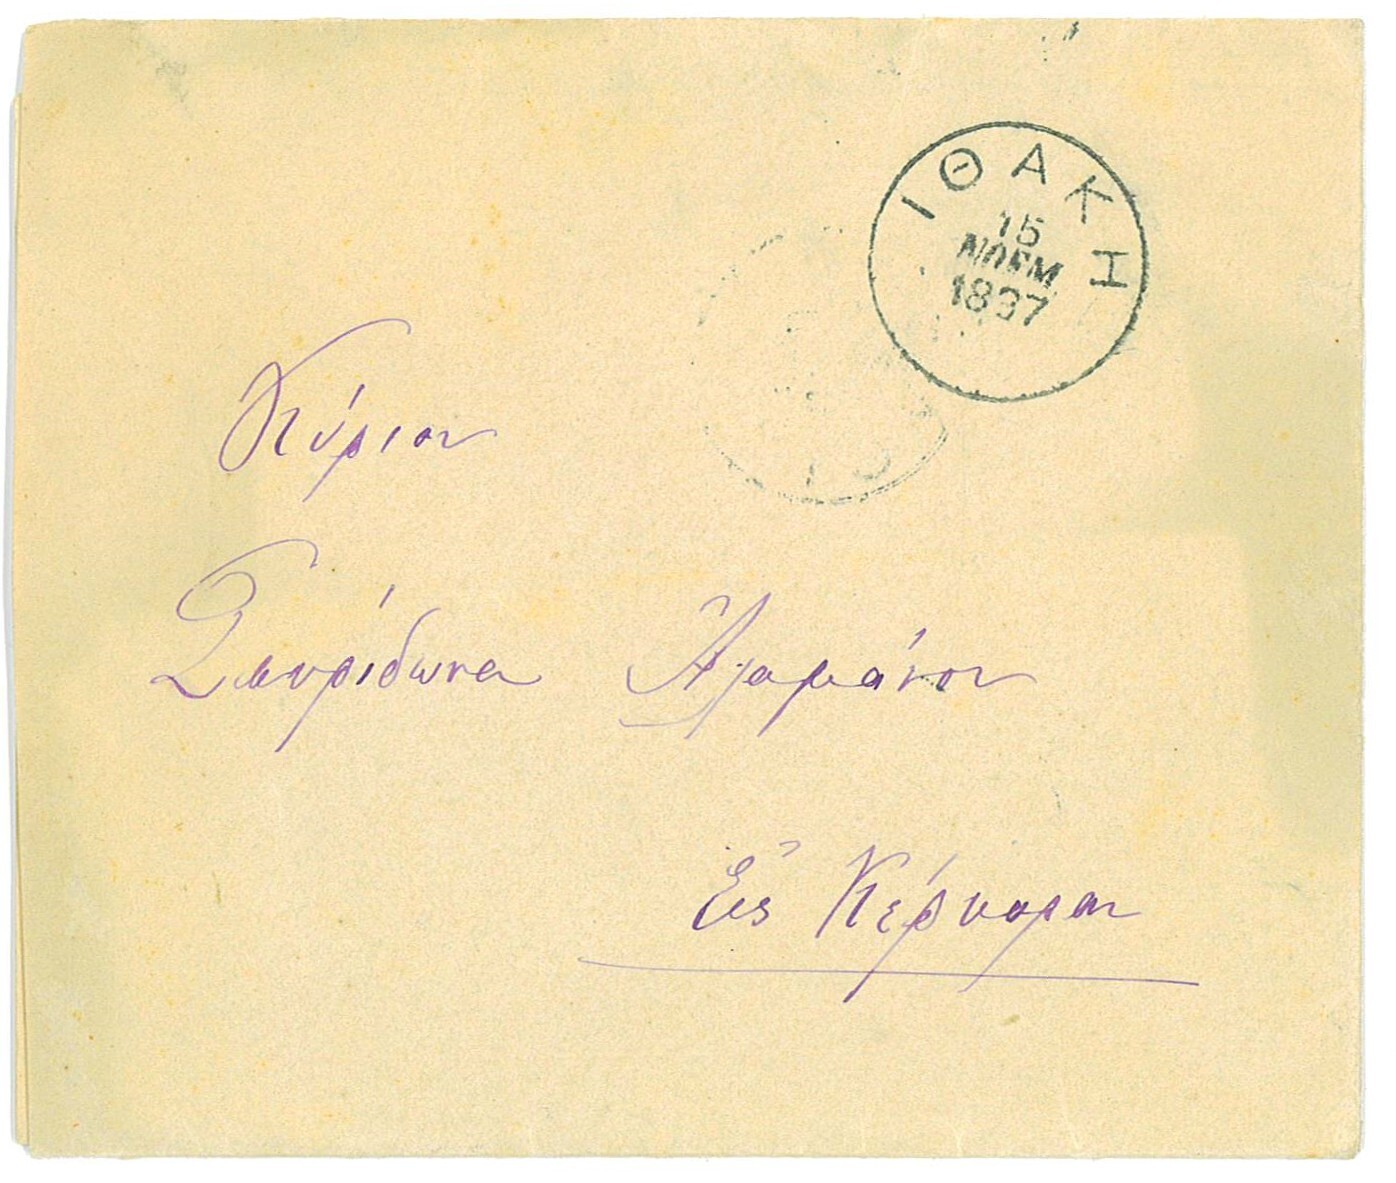 ΙΘΑΚΗ
15
ΝΟΕΜ
1897
Κύριον
Σπυρίδωνα Ἀλαμάνον
Εἰς Κέρκυραν